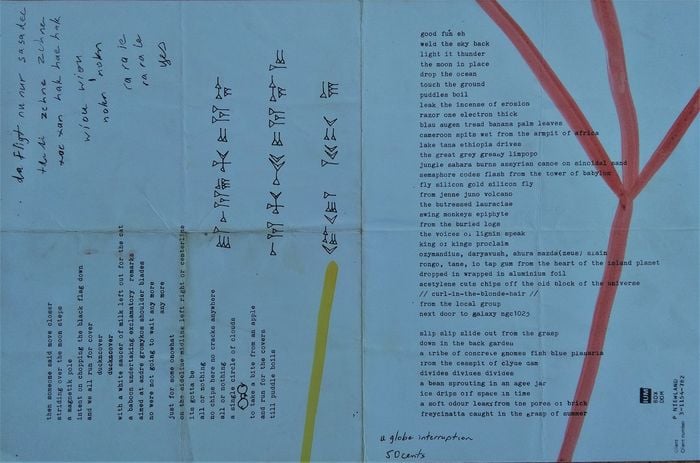 good fun eh
weld the sky back
light it thunder
the moon in place
drop the ocean
touch the ground
puddles boil
leak the incense of erosion
razor one electron thick
blau augen tread banana palm leaves
cameroon spits wet from the armpit of africa
lake tana ethiopia drives
the great grey greasy limpopo
jungle sahara burns assyrian canoe on sinoidal sand
semaphore codes flash from the tower of babylon
fly silicon gold silicon fly
from jenne juno volcano
the butressed lauraciae
swing monkeys epiphyte
from the buried logs
the voices of lignin speak
king of kings proclaim
ozymandius, daryavush, ahura mazda(zeus)
rongo, tane, io tap gum from the heart of the island planet
dropped in wrapped in aluminium foil
acetylene cuts chips off the old block of the universe
// curl-in-the-blonde-hair //
from the local group
next door to galaxy ngc1023
slip slip slide out from the grasp
down in the back garden
a tribe of concrete gnomes fish blue planaria
from the cesspit of clyde dam
divides divices divides
a bean sprouting in an agee jar
ice drips off space in time
a soft odour leaks from the pores of brick
freycinatta caught in the grasp of summer
then someone said move closer
striding over the moon steps
a magnetik smile
intent on chopping the black flag down
and we all run for cover
duckncover
duckncover
with a white saucer of milk left out for the cat
a baboon undertaking exclamatory remarks
aimed at andre greaykos shoulder blades
no were not going to wait any more
any more
just for some somewhat
on the sideline midline left right or centerline
its gotta be
all or nothing
no chips here no cracks anywhere
all or nothing
a single circle of clouds
to take a bite from an apple
and run for the covers
till puddle boils
da fligt nu nur sasadec
zehne zehne
hak hae hak
wiou wiou
nokn nokn
ra ra ie
ra ra le
yes
a globe interruption
50cents
P NIEWLAND
Client
Client number: 3-1154-782